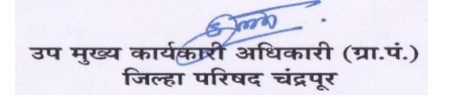 उप मुख्य कार्यकारी अधिकारी (ग्रा.पं.)
जिल्हा परिषद चंद्रपूर